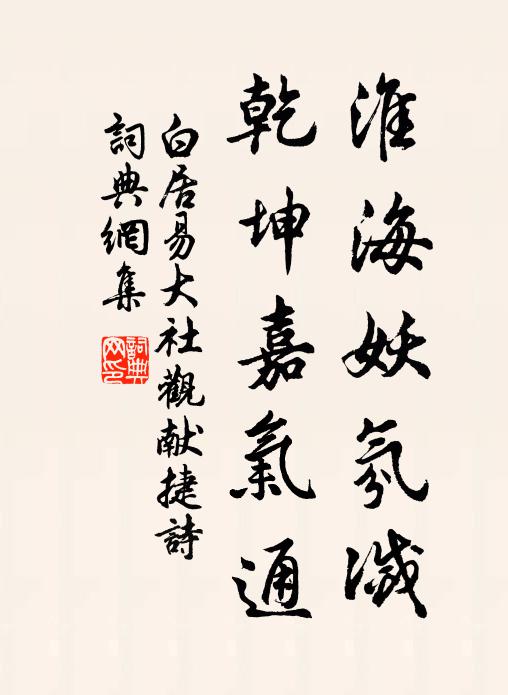 淮海妖氛滅
乾坤嘉氣通
白居易大社觀献捷詩
詞典網集
詞典
网印